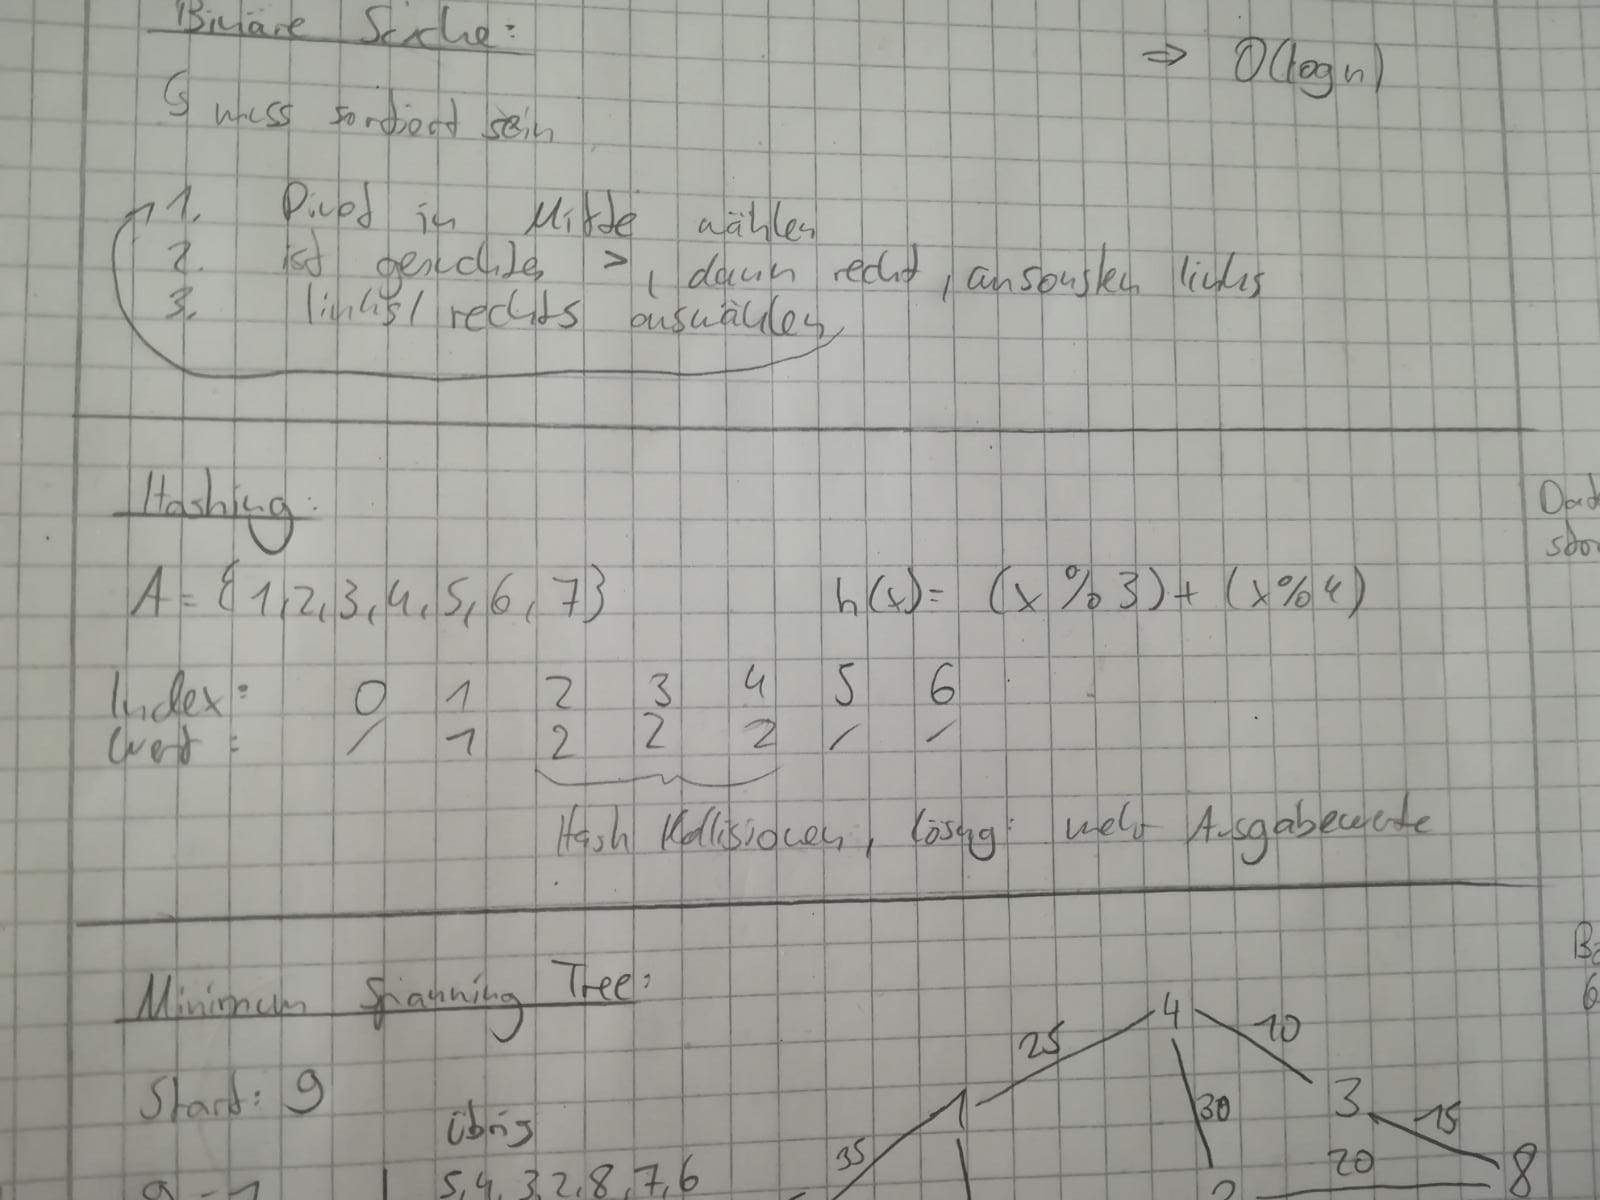 Binäre Suche:
⇒ O(log n)
↳ muss sortiert sein
1. Pivot in Mitte wählen
2. ist gesuchtes > , dann recht, ansonsten links
3. links/rechts auswählen
Hashing:
A = {1,2,3,4,5,6,7} h(x) = (x % 3) + (x % 4)
Index: 0 1 2 3 4 5 6
Wert: / 1 2 2 2 / /
Hash Kollisionen, lösng: mehr Ausgabewerte
Minimum Spanning Tree:
4
25 10
Start: 9
1 3
30 15
übrig
35 20 8
5,4,3,2,8,7,6
9-1 2